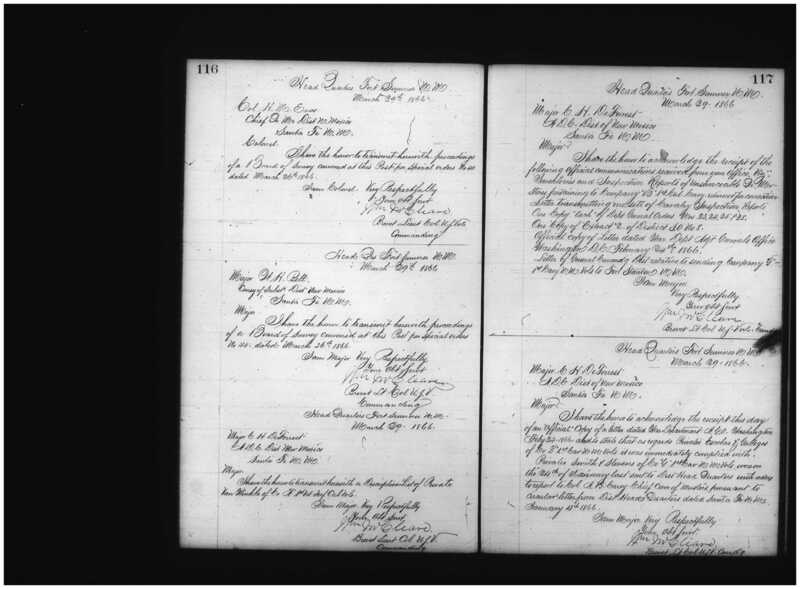 116
Head Quarters Fort Sumner N. MO
March 29th 1866
Col. H. M.
Chief Q. Mr Dist N. Mexico
Santa Fe N. MO.
Colonel.
I have the honor to transmit herewith proceedings
of a Board of Survey convened at this Post per Special orders No
dated March 26th 1866.
I am Colonel Very Respectfully
Your Obt Servt
Wm McCleave
Brevet Lieut Col U.S. Vols
Commanding
Head Qrs Fort Sumner N. MO
March 29th 1866
Major W. H. Bell
Comsy of Subst Dist New Mexico
Santa Fe N. MO.
Major
I have the honor to transmit herewith proceedings
of a Board of Survey convened at this Post per Special orders
No dated March 26th 1866
I am Major Very Respectfully
Your Obt Servt
Wm McCleave
Brevet Lt Col U.S.V.
Commanding
Head Quarters Fort Sumner N. M.
March 29. 1866
Major C. H. DeForrest
A.D.C. Dist New Mexico
Santa Fe N. MO
Major.
I have the honor to transmit herewith a Descriptive List of Private
Van Winkle of Co. 1st Cal. Vols.
I am Major Very Respectfully
Your Obt Servt
Wm McCleave
Brevet Lieut Col U.S.V.
Commanding
117
Head Quarters Fort Sumner N. MO
March 29. 1866
Major C. H. DeForrest
A.D.C. Dist of New Mexico
Santa Fe N. MO
Major
I have the honor to acknowledge the receipt of the
following official communications received from your Office, Viz:
and Inspection Reports of Unserviceable
pertaining to Company "B" 1st Cal. Cavy. returned for correction
Letter transmitting six sets of Cavalry Inspection Reports
One Copy each of Dept General Orders Nos 22, 23, 24 & 25.
One Copy of Extract 2. of District S.O. No 5.
Official copy of Letter dated War Dept Adjt Generals Office
Washington D.C. February 1866
Letter of General Comndg Dist relative to sending Company
1st Cavy N.M. Vols to Fort Stanton N. MO.
I am Major
Very Respectfully
Your Obt Servt
Wm McCleave
Brevet Lt Col U.S. Vols. Comdg
Head Quarters Fort Sumner N. MO
March 29. 1866.
Major C. H. DeForrest
A.D.C. Dist of New Mexico
Santa Fe N. MO.
Major
I have the honor to acknowledge the receipt this day
of an "Official" Copy of a letter dated War Department A.G.O. Washington
Feby 1866 and to state that as regards Private
of Co 1st Cav N.M. Vols it was immediately complied with.
Privates Smith & Stevens of Co. 1st Cav N.M. Vols were on
the 24th of January last sent to Dist Head Quarters with orders
to report to Col. A. B. Carey Chief Com of Musters pursuant to
circular letter from Dist Head Quarters dated Santa Fe N. MO
January 18th 1866.
I am Major Very Respectfully
Your Obt Servt
Wm McCleave
Brevet Lt Col U.S.V. Comdg